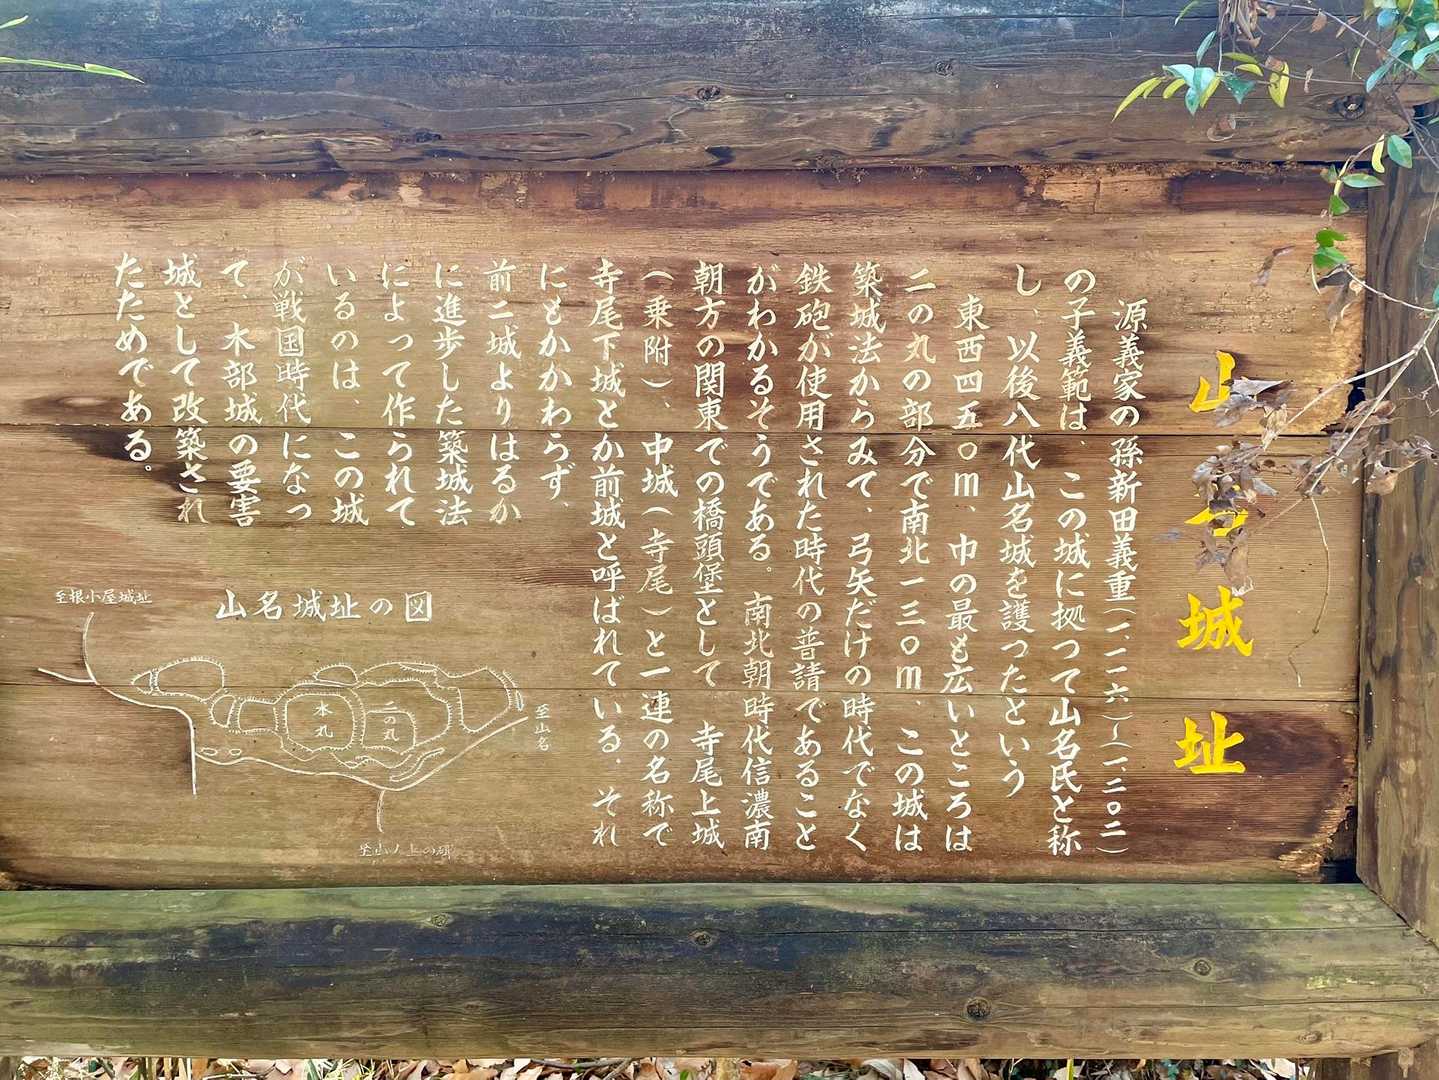 山名城址
源義家の孫新田義重(一、一二六)~(一、二〇二)
の子義範は、この城に拠つて山名氏と称
し、以後八代山名城を護つたという
東西四五〇m、巾の最も広いところは
二の丸の部分で南北一三〇m、この城は
築城法からみて、弓矢だけの時代でなく
鉄砲が使用された時代の普請であること
がわかるそうである。南北朝時代信濃南
朝方の関東での橋頭堡として 寺尾上城
(乗附)、中城(寺尾)と一連の名称で
寺尾下城とか前城と呼ばれている。それ
にもかかわらず、
前二城よりはるか
に進歩した築城法
によって作られて
いるのは、この城
が戦国時代になっ
て、木部城の要害
城として改築され
たためである。
山名城址の図
至根小屋城址
本丸
二の丸
至山名
至山ノ上の碑